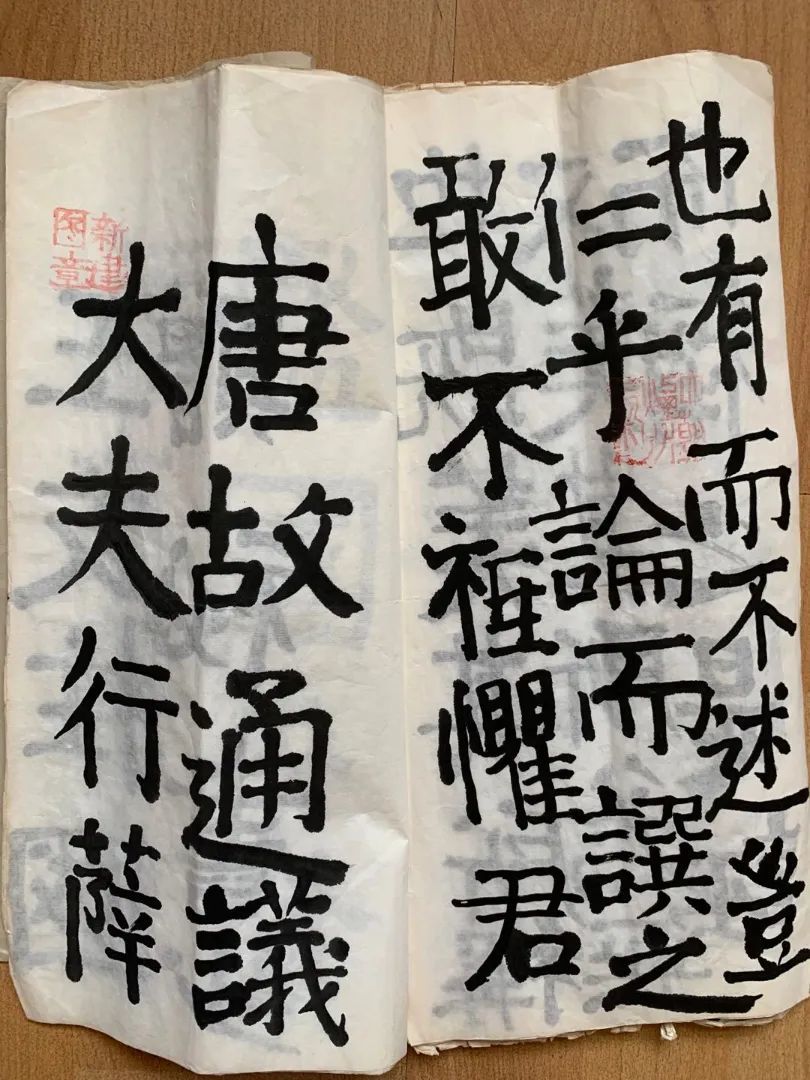 也有而不述豈
二乎論而譔之
敢不祗懼君
唐故通議
大夫行薛
新建
图章